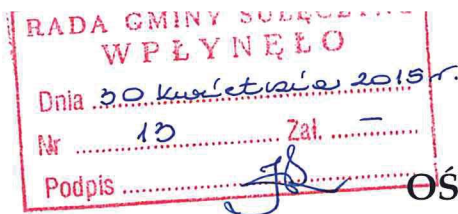 RADA GMINY SULĘCZYNO
WPŁYNĘŁO
Dnia 30 kwietnia 2015 r.
Nr 13 Zał. –
Podpis
OŚ